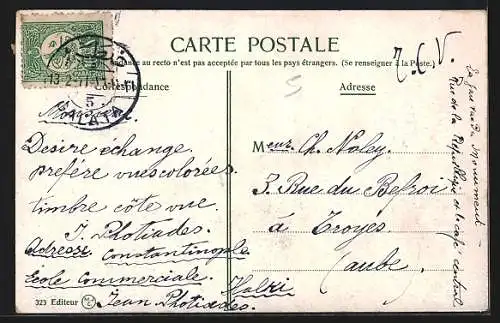 CARTE POSTALE
T.C.V.
dance au recto n'est pas acceptée par tous les pays étrangers. (Se renseigner à la Poste.)
Correspondance
Adresse
5
13 2 11
5
GALATA
Monsieur
Désire échange.
préfère vues colorées
timbre côté vue.
J. Photiadès
Adresse Constantinople
École commerciale.
Halki
Jean Photiadès.
323 Editeur
Meur. Ch. Noley
3. Rue du Befroi
à Troyes
(aube)
monument
Rue de la République et le café central